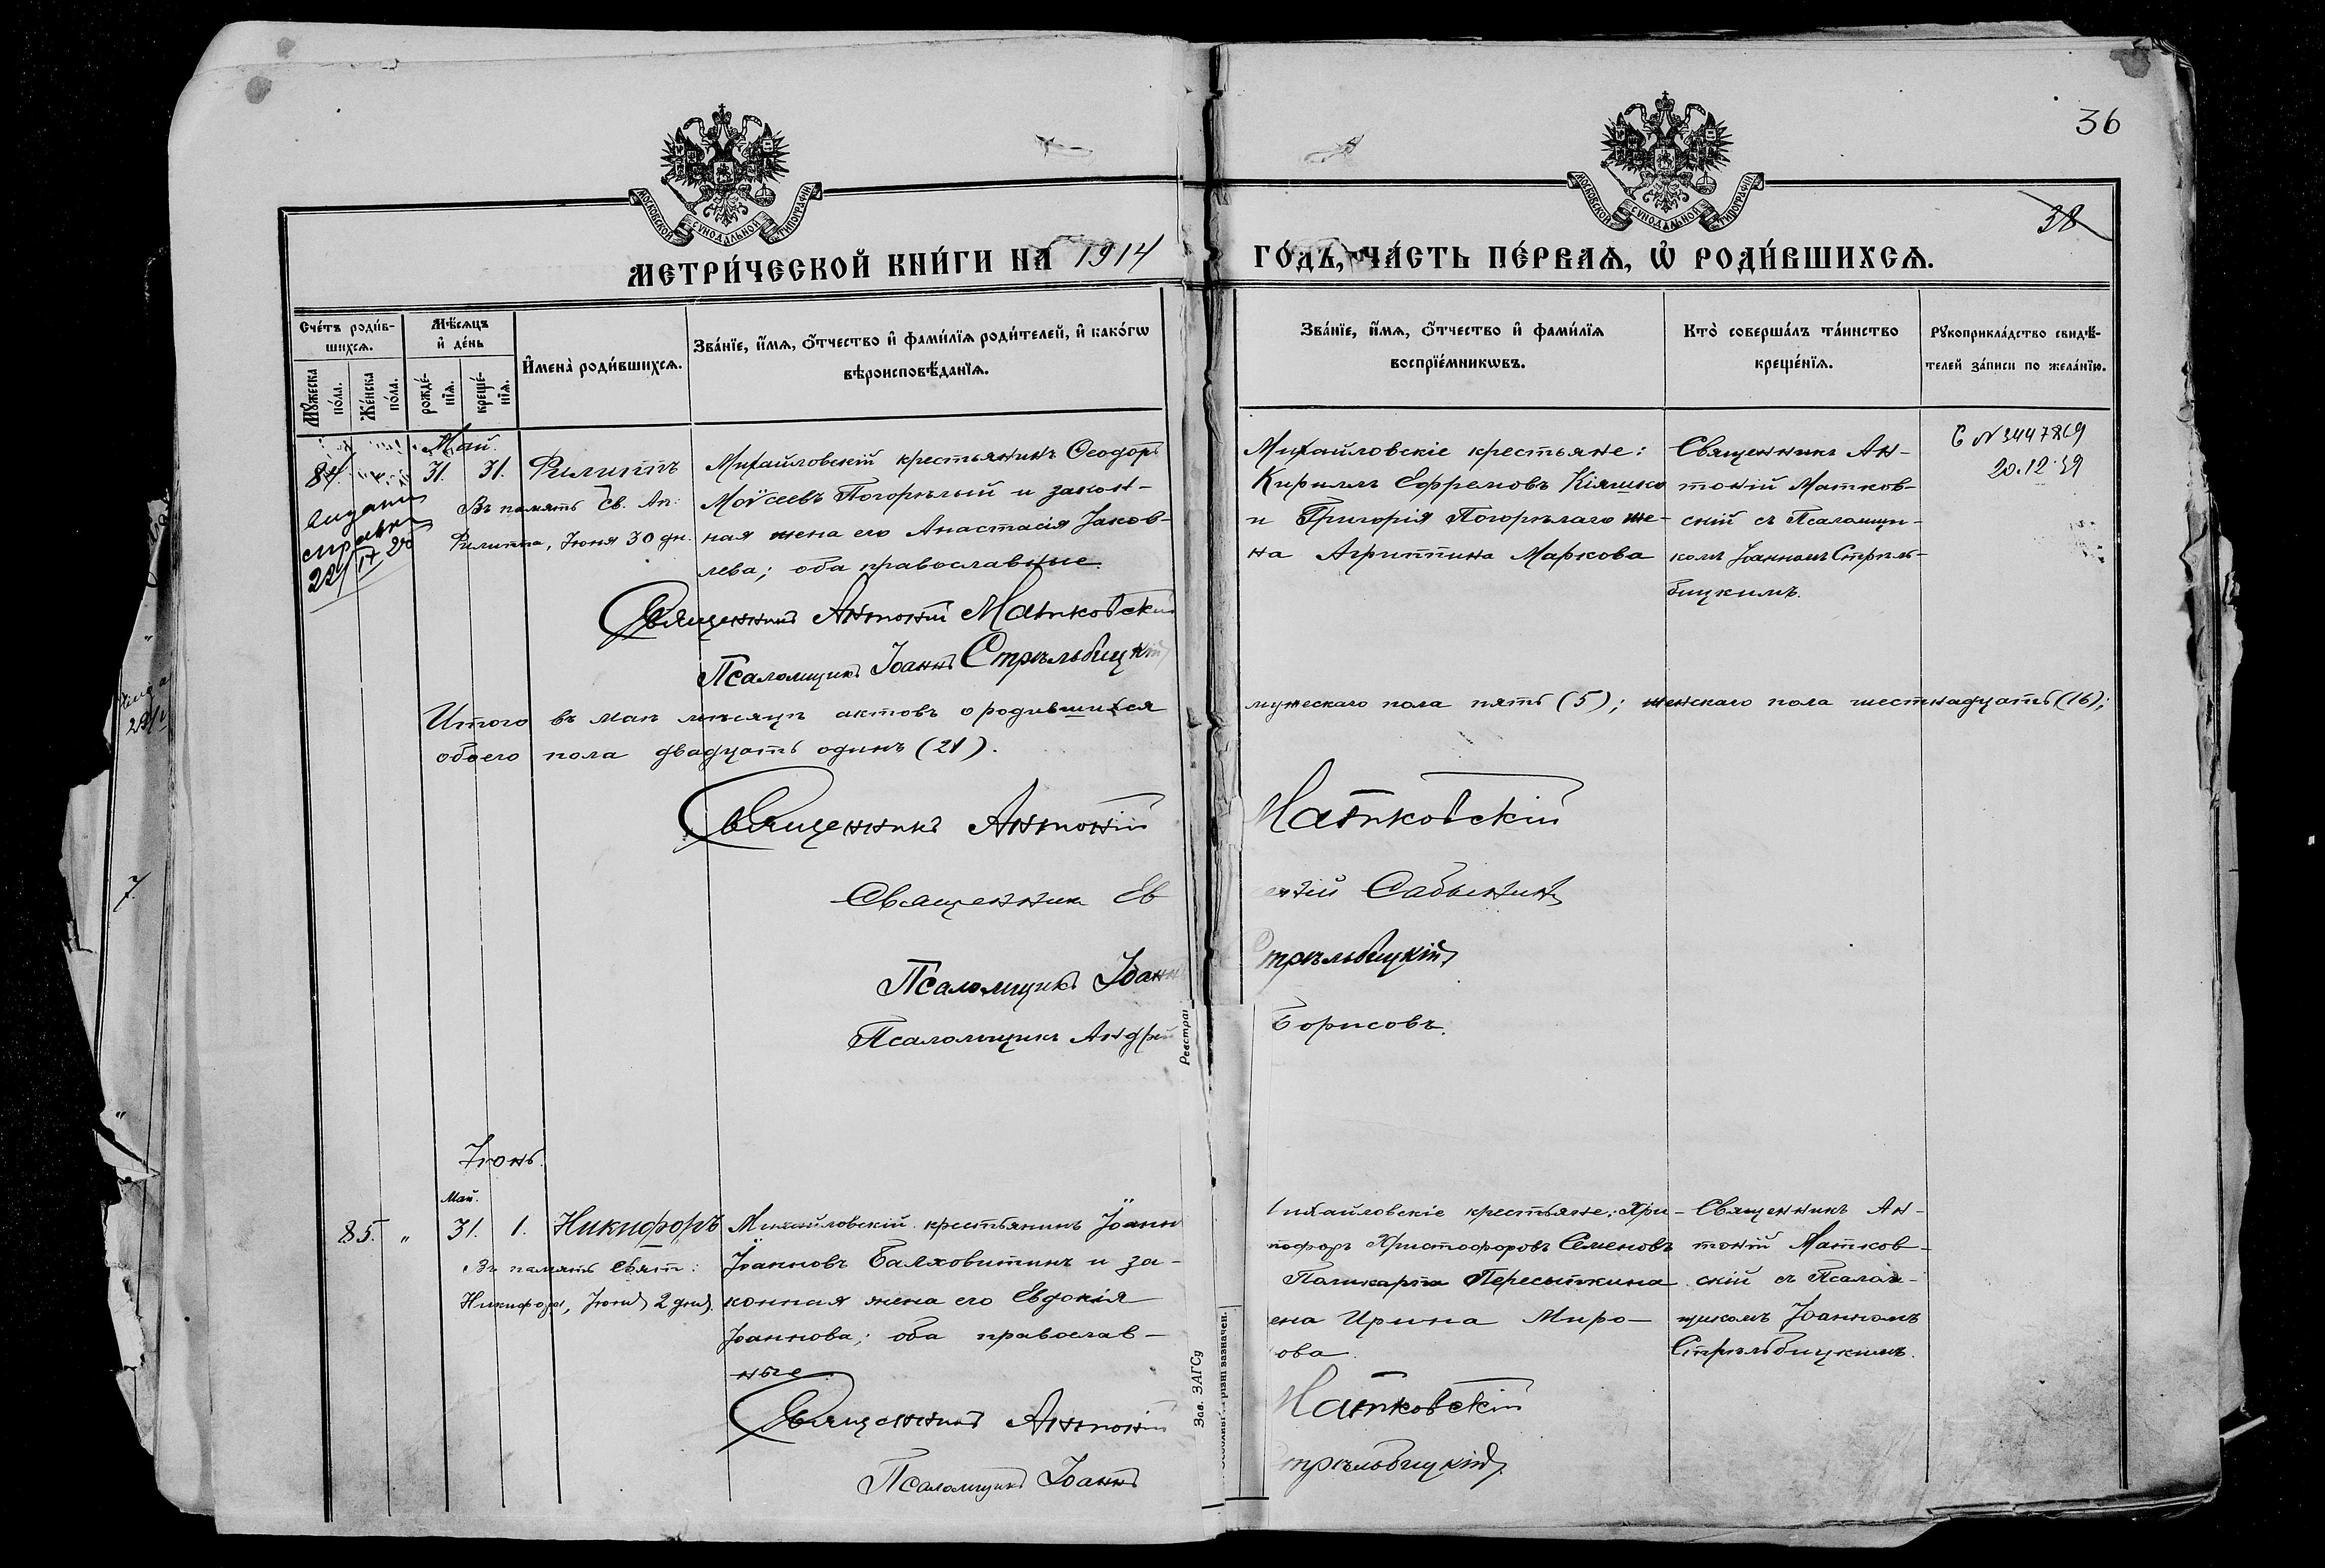 36
38
МОСКОВСКОЙ СѴНОДАЛЬНОЙ ТИПОГРАФІИ
МОСКОВСКОЙ СѴНОДАЛЬНОЙ ТИПОГРАФІИ
МЕТРИ́ЧЕСКОЙ КНИ́ГИ НА 1914
ГО́ДЪ, ЧА́СТЬ ПЕ́РВАѦ, Ѡ҆ РОДИ́ВШИХСѦ.
Сче́тъ роди́в-
шихсѧ.
Мꙋ́жеска по́ла.
Же́нска по́ла.
Мѣ́сѧцъ
и҆ де́нь
рожде́-
нїѧ.
креще́-
нїѧ.
И҆мена̀ роди́вшихсѧ.
Зва́нїе, и҆́мѧ, ѻ҆́тчество и҆ фами́лїѧ роди́телей, и҆ како́гѡ
вѣроисповѣ́данїѧ.
Зва́нїе, и҆́мѧ, ѻ҆́тчество и҆ фами́лїѧ
воспрїе́мникѡвъ.
Кто̀ соверша́лъ та́инство
креще́нїѧ.
Рꙋкоприкла́дство свидѣ́-
телей за́писи по жела́нїю.
Май.
84. 31. 31. Филиппъ
Въ память Св. Ап:
Филиппа, Іюня 30 дн.
справка
Михайловскій крестьянинъ Ѳеодоръ
Моѵсеевъ Погорѣлый и закон-
ная жена его Анастасія Іаков-
лева; оба православные.
Михайловскіе крестьяне:
Кириллъ Ефремовъ Кіяшко
и Григорія Погорѣлаго же-
на Агриппина Маркова
Священникъ Ан-
тоній Матков-
скій съ Псаломщи-
комъ Іоанномъ Стрѣль-
бицкимъ.
20.12.
Священникъ Антоній Матковскій
Псаломщикъ Іоаннъ Стрѣльбицкій
Итого въ маѣ мѣсяцѣ актовъ о родившихся
мужескаго пола пять (5); женскаго пола шестнадцать (16);
обоего пола двадцать одинъ (21).
Священникъ Антоній Матковскій
Священникъ Ев Сабынинъ
Псаломщикъ Іоаннъ Стрѣльбицкій
Псаломщикъ Андрей Борисовъ.
Реестрац
Зав. ЗАГСу
Іюнь.
Май.
85. „ 31. 1. Никифоръ
Въ память Свят:
Никифора, Іюня 2 дня.
Михайловскій крестьянинъ Іоанн
Іоанновъ Балховитинъ и за-
конная жена его Евдокія
Іоаннова; оба православ-
ные.
ихайловскіе крестьяне: Хри-
тофоръ Христофоровъ Семеновъ
Поликарпа Пересыпкина
ена Ирина Миро-
ова.
Священникъ Ан-
тоній Матков-
скій съ Псалом-
щикомъ Іоанномъ
Стрѣльбицкимъ.
Священникъ Антоній Матковскій
Псаломщикъ Іоаннъ Стрѣльбицкій